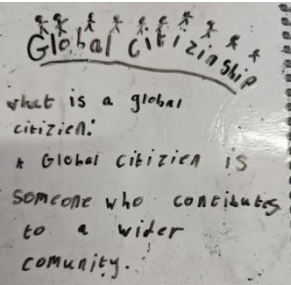 Global Citizinship
what is a global
citizien.
A Global Citizien is
someone who contibutes
to a wider
comunity.